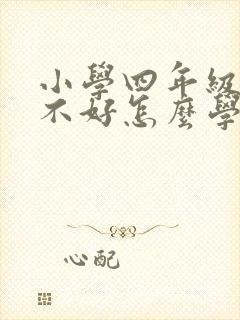 小學四年級
不好怎麼學
心配